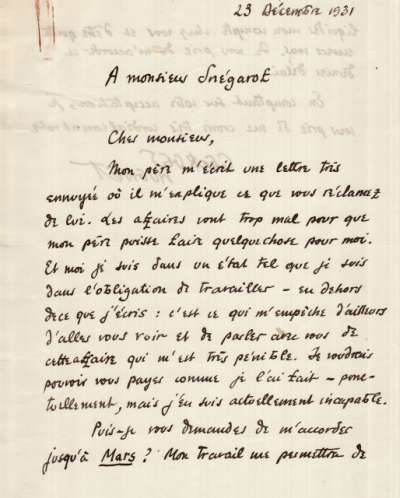 23 Décembre 1931
A monsieur
Cher monsieur,
Mon père m'écrit une lettre très
ennuyée où il m'explique ce que vous réclamez
de lui. Les affaires vont trop mal pour que
mon père puisse faire quelquechose pour moi.
Et moi je suis dans un état tel que je suis
dans l'obligation de travailler – en dehors
de ce que j'écris : c'est ce qui m'empêche d'ailleurs
d'aller vous voir et de parler avec vous de
cette affaire qui m'est très pénible. Je voudrais
pouvoir vous payer comme je l'ai fait – ponc-
tuellement, mais j'en suis actuellement incapable.
Puis-je vous demander de m'accorder
jusqu'à Mars ? Mon travail me permettra de